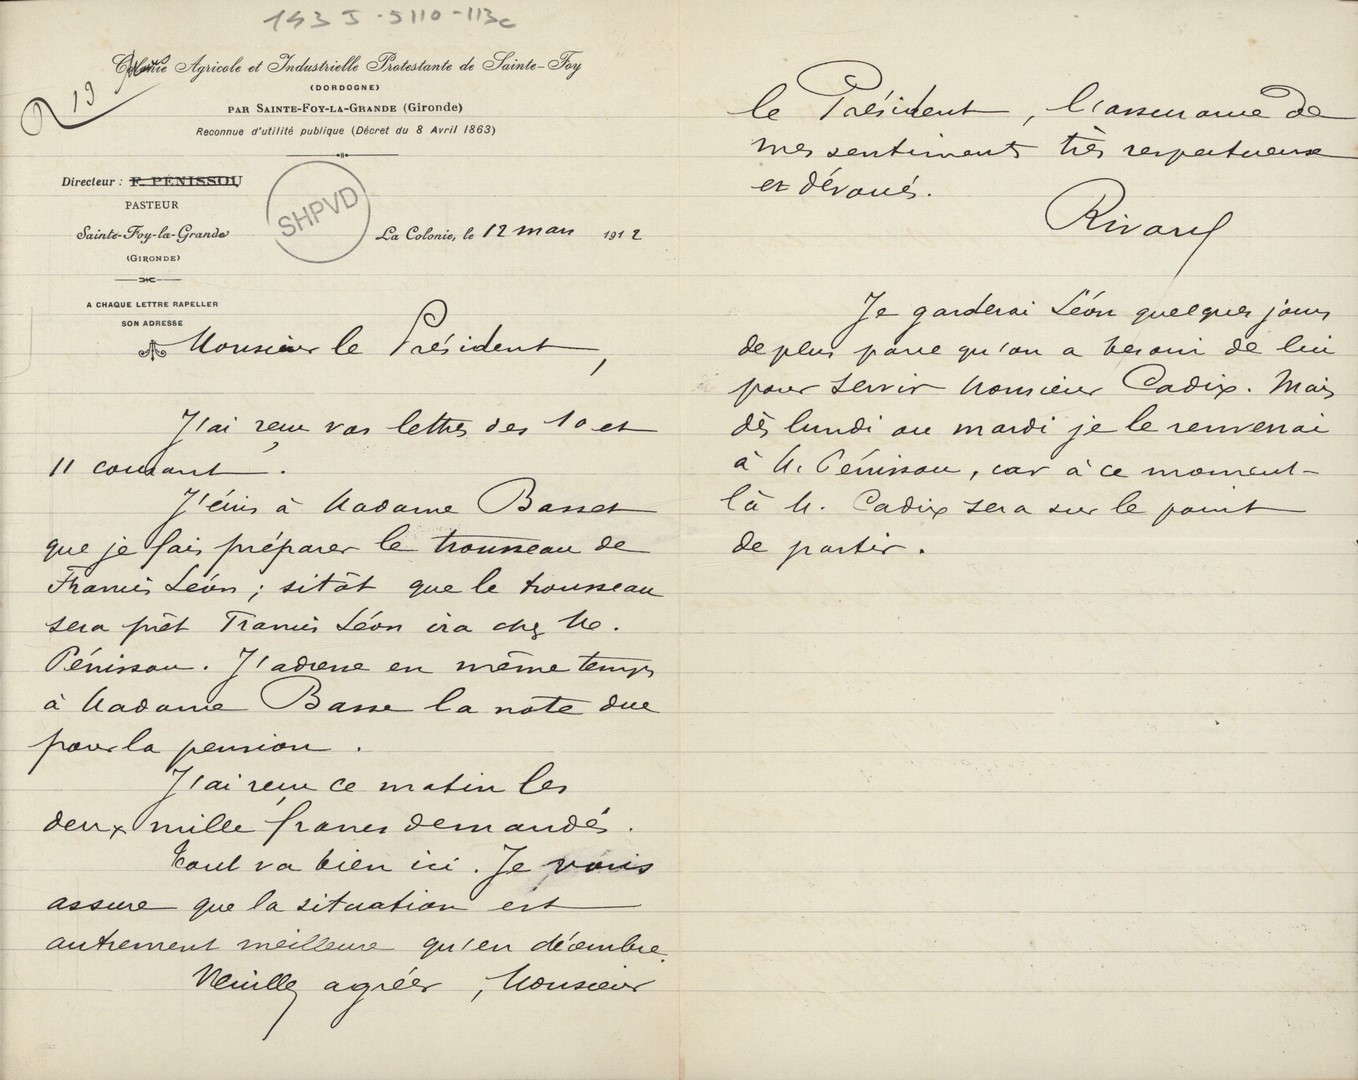 143 J-5110-113c
R 19 Mars
Colonie Agricole et Industrielle Protestante de Sainte-Foy
(DORDOGNE)
PAR SAINTE-FOY-LA-GRANDE (Gironde)
Reconnue d'utilité publique (Décret du 8 Avril 1863)
Directeur : F. PÉNISSOU
PASTEUR
Sainte-Foy-la-Grande
(GIRONDE)
A CHAQUE LETTRE RAPELLER
SON ADRESSE
SHPVD
La Colonie, le 12 mars 1912
Monsieur le Président,
J'ai reçu vos lettres des 10 et
11 courant.
J'écris à Madame Basset
que je fais préparer le trousseau de
Francis Léon ; sitôt que le trousseau
sera prêt Francis Léon ira chez M.
Pénissou. J'adresse en même temps
à Madame Basse la note due
pour la pension.
J'ai reçu ce matin les
deux mille francs demandés.
Tout va bien ici. Je vous
assure que la situation est
autrement meilleure qu'en décembre.
Veuillez agréer, Monsieur
le Président, l'assurance de
mes sentiments très respectueux
et dévoués.
Rivard
Je garderai Léon quelques jours
de plus parce qu'on a besoin de lui
pour servir Monsieur Cadix. Mais
dès lundi ou mardi je le renverrai
à M. Pénissou, car à ce moment-
là M. Cadix sera sur le point
de partir.